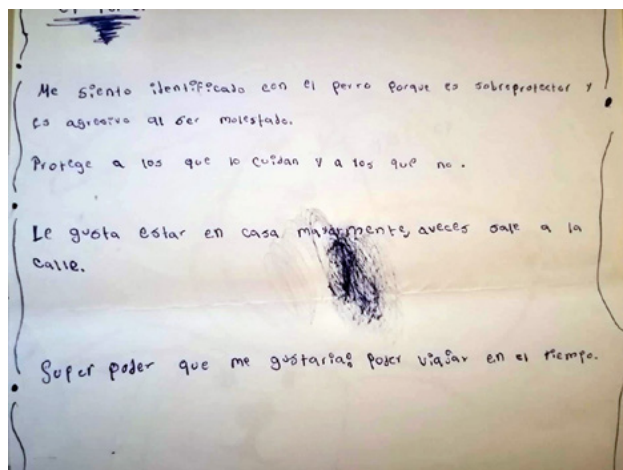 Me siento identificado con el perro porque es sobreprotector y
es agresivo al ser molestado.
Protege a los que lo cuidan y a los que no.
Le gusta estar en casa mayarmente, aveces sale a la
calle.
Super poder que me gustaria: poder viajar en el tiempo.